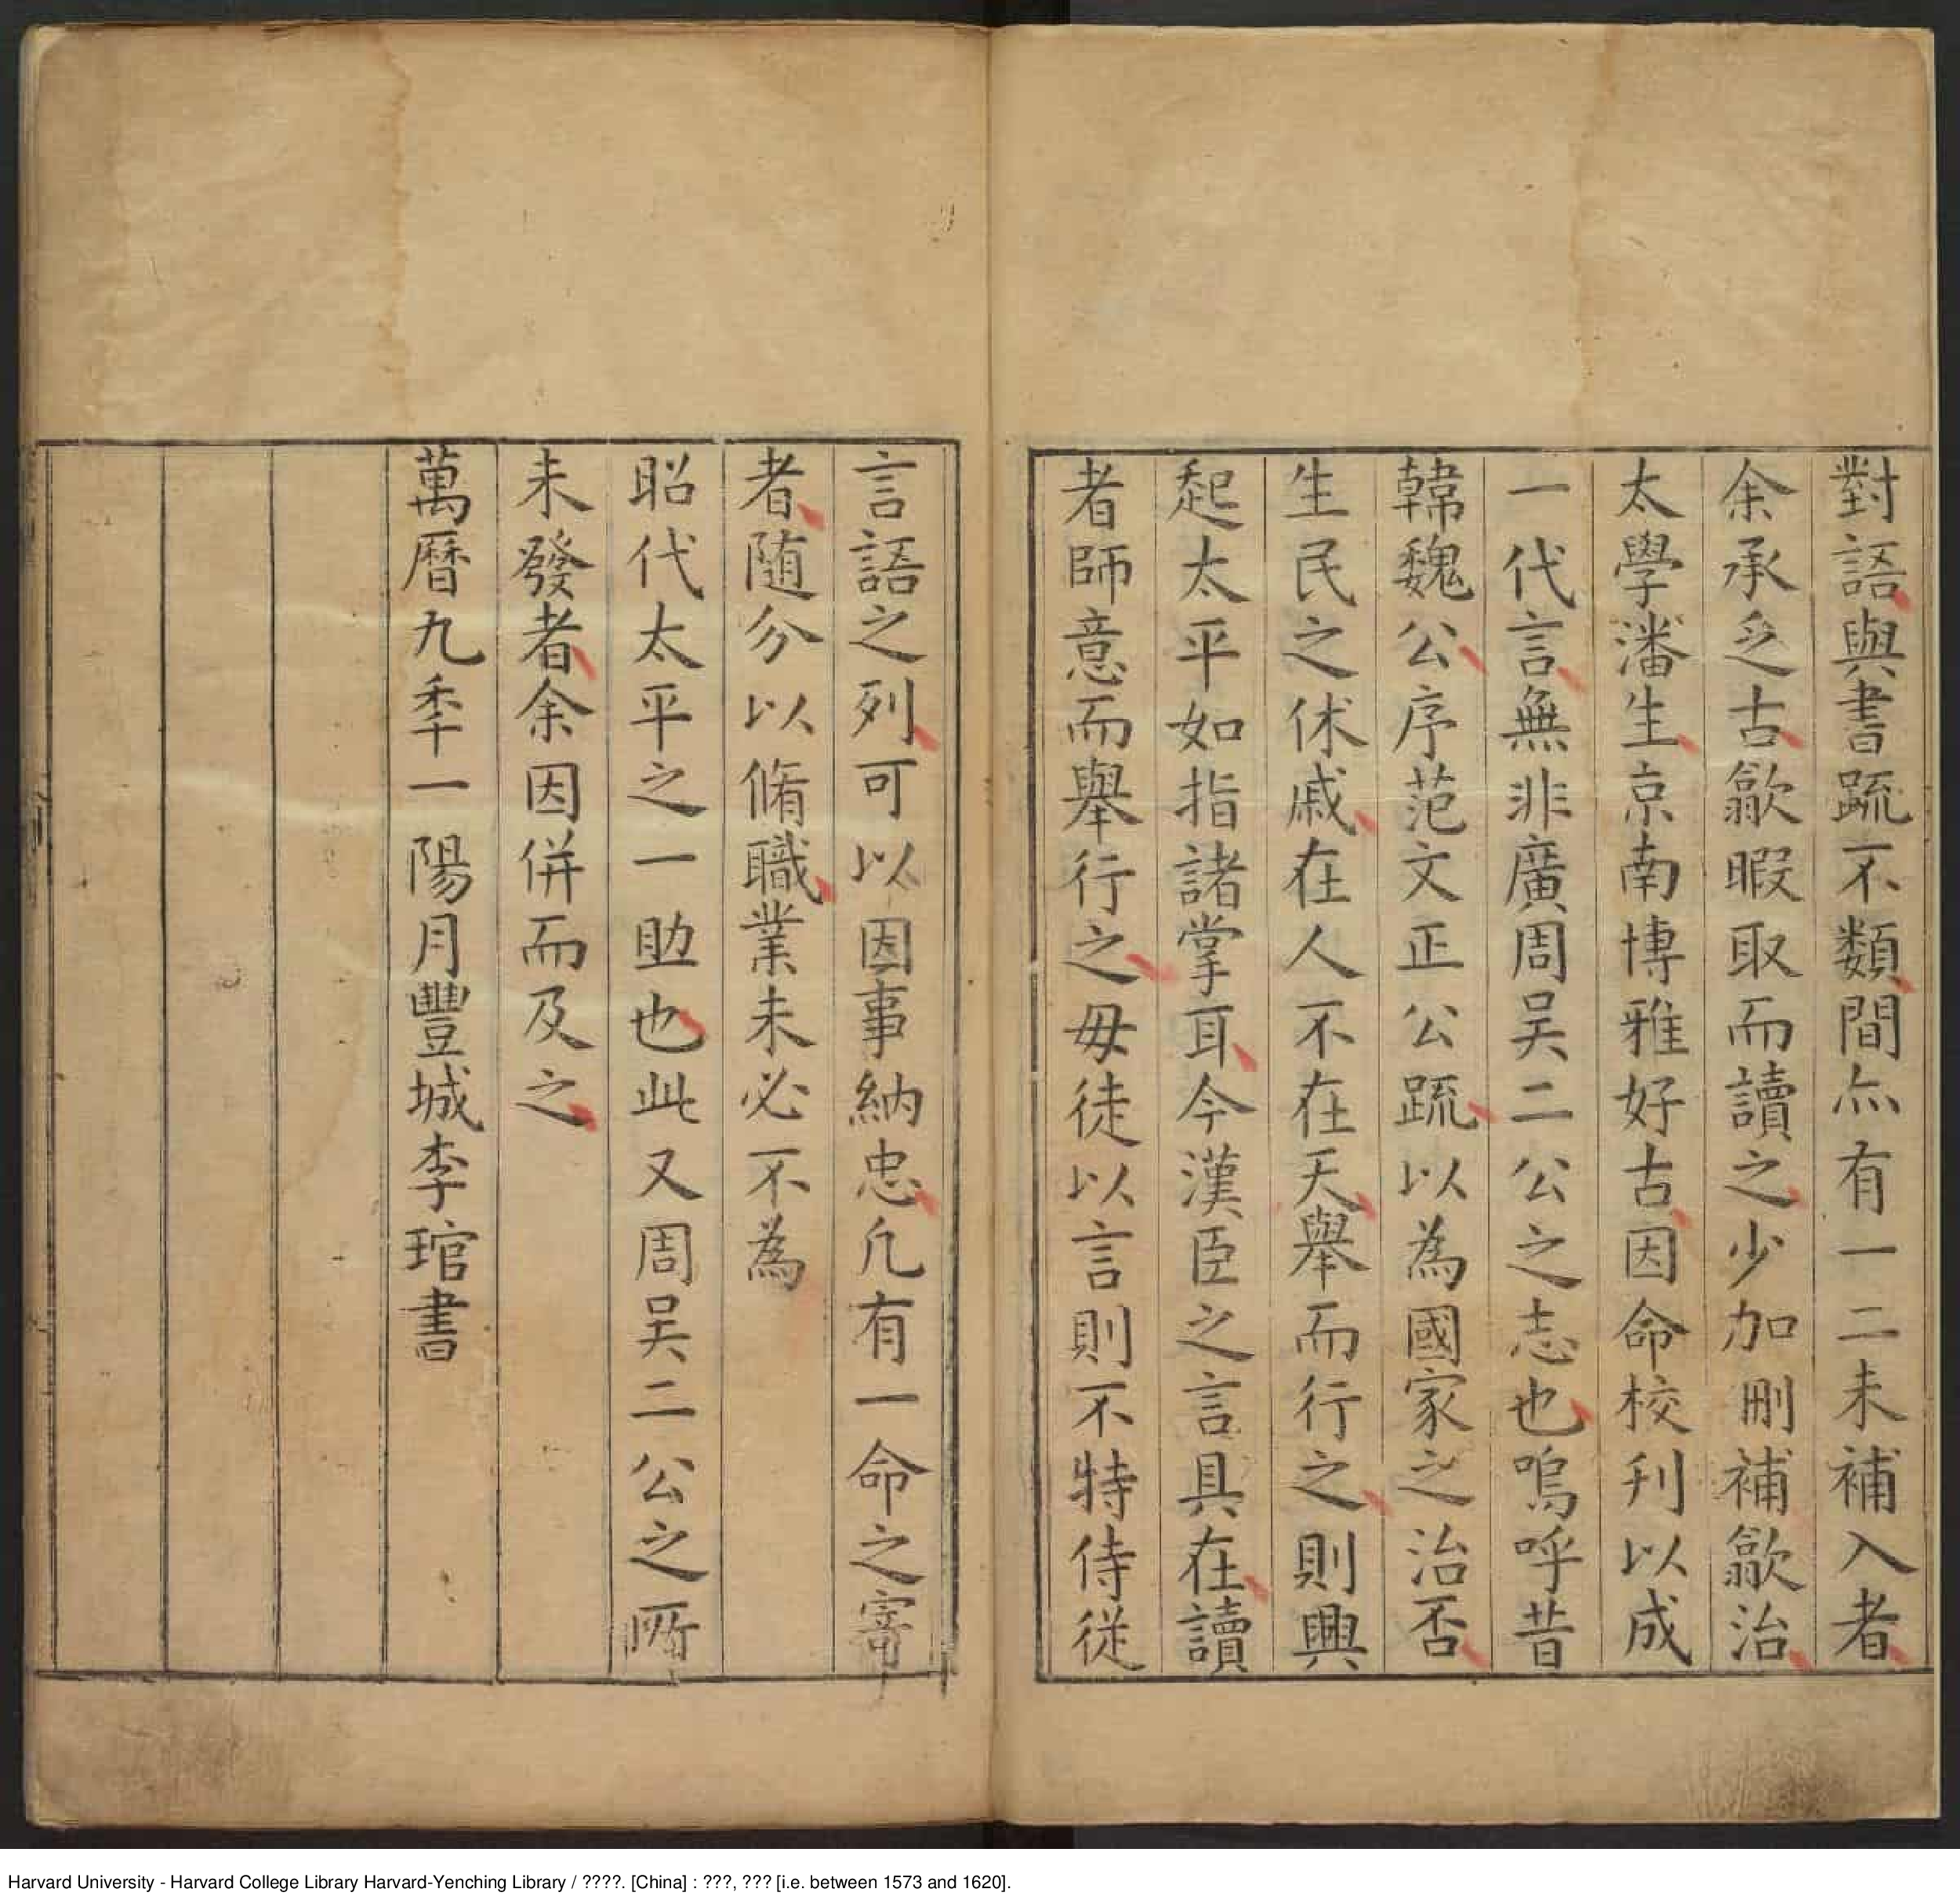 對語與書疏不類間亦有一二未補入者
余承乏古歙暇取而讀之少加刪補歙治
太學潘生京南博雅好古因命校刋以成
一代言無非廣周吴二公之志也嗚呼昔
韓魏公序范文正公疏以為國家之治否
生民之休戚在人不在天舉而行之則興
起太平如指諸掌耳今漢臣之言具在讀
者師意而舉行之毋徒以言則不特侍從
言語之列可以因事納忠凢有一命之寄
者随分以脩職業未必不為
昭代太平之一助也此又周吴二公之所
未發者余因併而及之
萬曆九季一陽月豐城李琯書
Harvard University - Harvard College Library Harvard-Yenching Library / ????. [China] : ???, ??? [i.e. between 1573 and 1620].